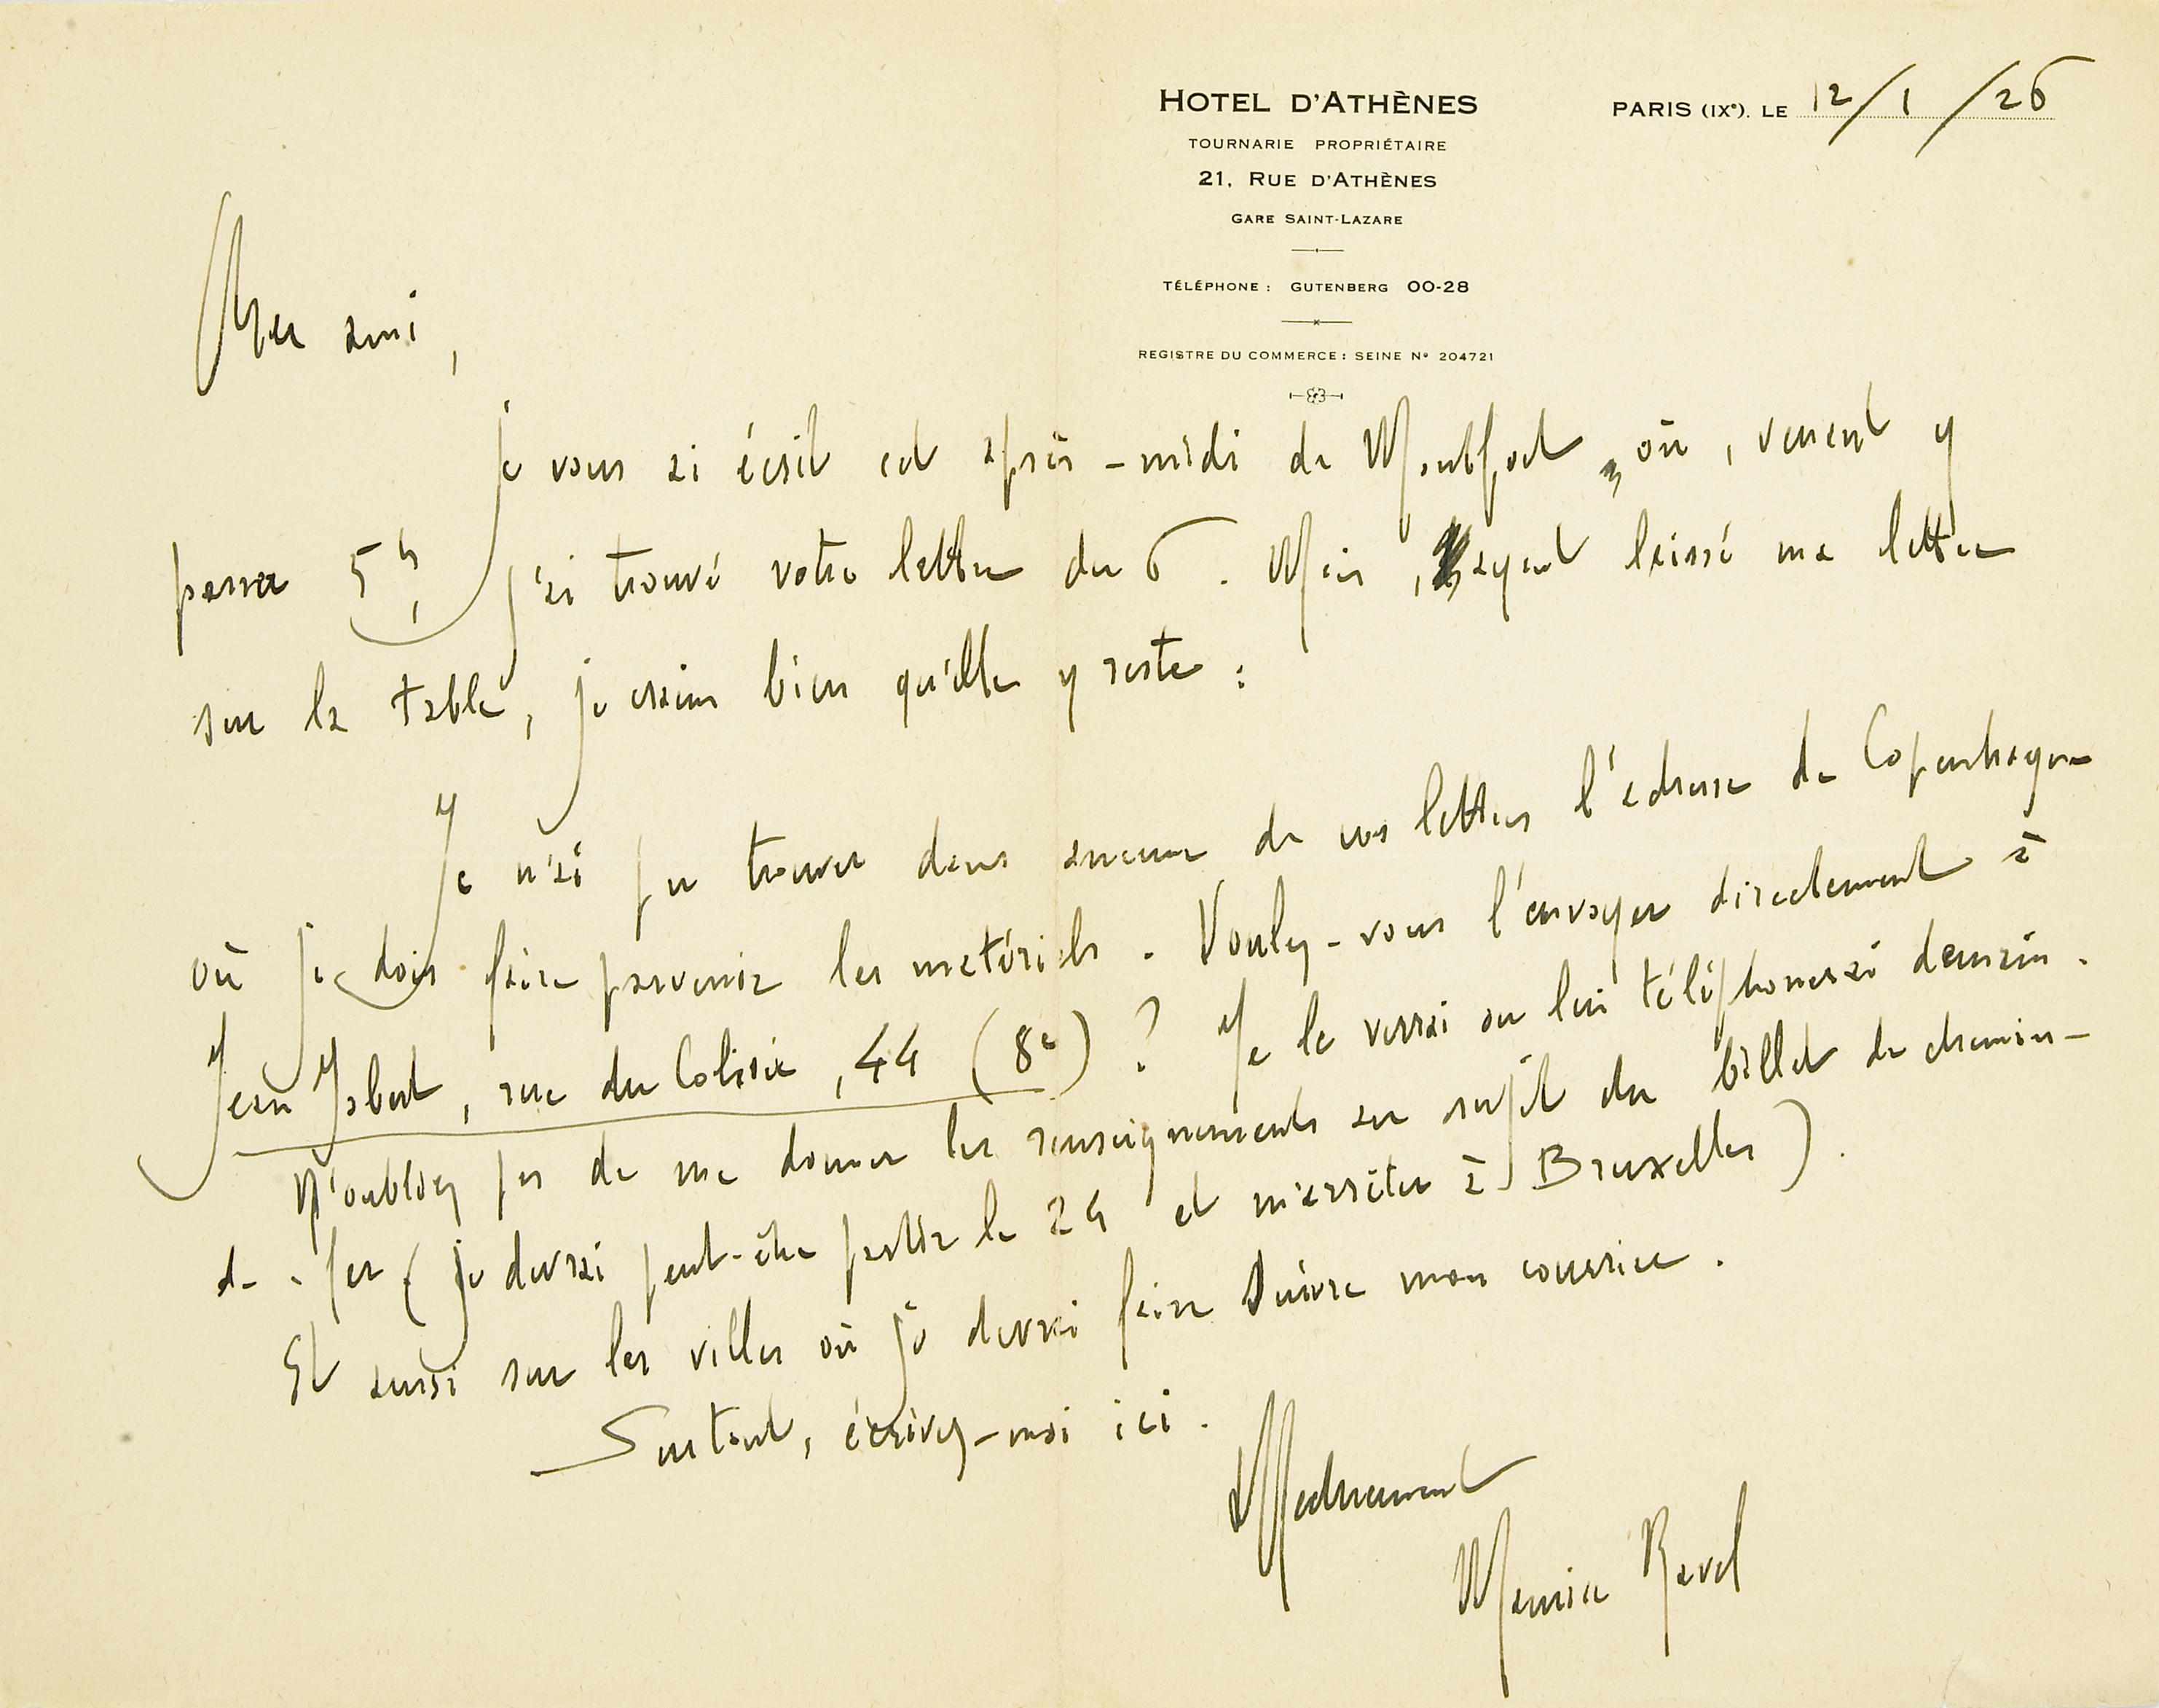 HOTEL D'ATHÈNES
TOURNARIE PROPRIÉTAIRE
21, RUE D'ATHÈNES
GARE SAINT-LAZARE
TÉLÉPHONE : GUTENBERG 00-28
REGISTRE DU COMMERCE : SEINE Nº 204721
PARIS (IXe). LE 12/1/26
Cher ami,
je vous ai écrit cet après-midi de Montfort, où, venant y
passer 5h, j'ai trouvé votre lettre du 6. Mais, ayant laissé ma lettre
sur la table, je crains bien qu'elle y reste :
Je n'ai pu trouver dans aucune de vos lettres l'adresse de Copenhague
où je dois faire parvenir les matériels. Voulez-vous l'envoyer directement à
Jean Jobert, rue du Colisée, 44 (8e) ? Je le verrai ou lui téléphonerai demain.
N'oubliez pas de me donner les renseignements au sujet du billet de chemin-
de-fer (je devrai peut-être partir le 24 et m'arrêter à Bruxelles).
Et aussi sur les villes où je devrai faire suivre mon courrier.
Surtout, écrivez-moi ici.
Maurice Ravel